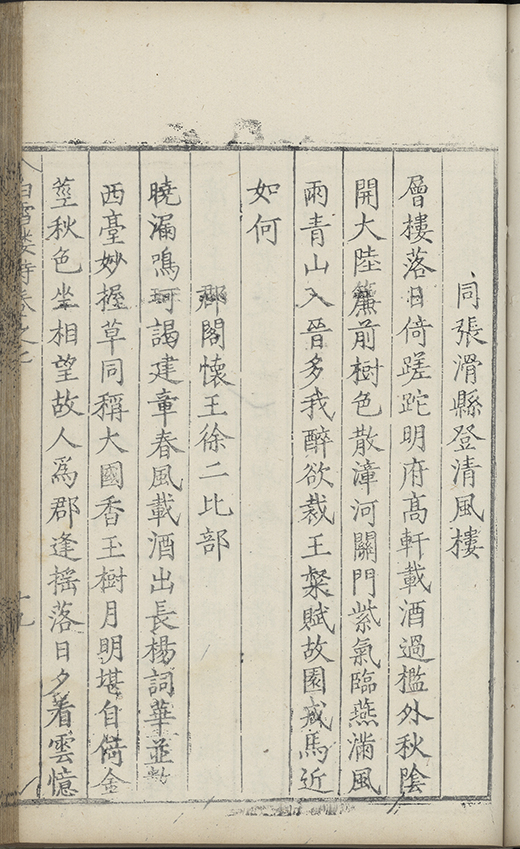 同張滑縣登清風樓
層樓落日倚蹉跎明府高軒載酒過檻外秋陰
開大陸簾前樹色散漳河關門紫氣臨燕滿風
雨青山入晉多我醉欲裁王粲賦故園戎馬近
如何
郡閣懷王徐二比部
曉漏鳴珂謁建章春風載酒出長楊詞華並數
西臺妙握草同稱大國香玉樹月明堪自倚金
莖秋色坐相望故人為郡逢揺落日夕看雲憶
白雪樓詩卷之七
十九